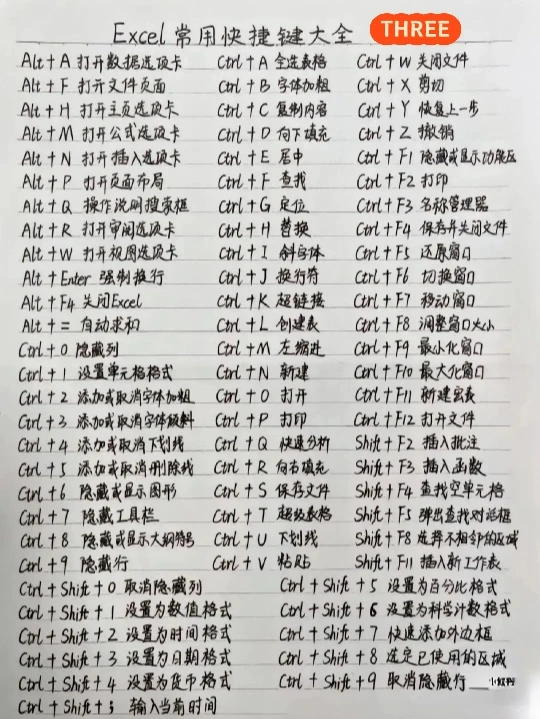 Excel常用快捷键大全 THREE
Alt + A 打开数据选项卡
Alt + F 打开文件页面
Alt + H 打开主页选项卡
Alt + M 打开公式选项卡
Alt + N 打开插入选项卡
Alt + P 打开页面布局
Alt + Q 操作说明搜索框
Alt + R 打开审阅选项卡
Alt + W 打开视图选项卡
Alt + Enter 强制换行
Alt + F4 关闭Excel
Alt + = 自动求和
Ctrl + 0 隐藏列
Ctrl + 1 设置单元格格式
Ctrl + 2 添加或取消字体加粗
Ctrl + 3 添加或取消字体倾斜
Ctrl + 4 添加或取消下划线
Ctrl + 5 添加或取消删除线
Ctrl + 6 隐藏或显示图形
Ctrl + 7 隐藏工具栏
Ctrl + 8 隐藏或显示大纲符号
Ctrl + 9 隐藏行
Ctrl + A 全选表格
Ctrl + B 字体加粗
Ctrl + C 复制内容
Ctrl + D 向下填充
Ctrl + E 居中
Ctrl + F 查找
Ctrl + G 定位
Ctrl + H 替换
Ctrl + I 斜字体
Ctrl + J 换行符
Ctrl + K 超链接
Ctrl + L 创建表
Ctrl + M 左缩进
Ctrl + N 新建
Ctrl + O 打开
Ctrl + P 打印
Ctrl + Q 快速分析
Ctrl + R 向右填充
Ctrl + S 保存文件
Ctrl + T 超级表格
Ctrl + U 下划线
Ctrl + V 粘贴
Ctrl + W 关闭文件
Ctrl + X 剪切
Ctrl + Y 恢复上一步
Ctrl + Z 撤销
Ctrl + F1 隐藏或显示功能区
Ctrl + F2 打印
Ctrl + F3 名称管理器
Ctrl + F4 保存并关闭文件
Ctrl + F5 还原窗口
Ctrl + F6 切换窗口
Ctrl + F7 移动窗口
Ctrl + F8 调整窗口大小
Ctrl + F9 最小化窗口
Ctrl + F10 最大化窗口
Ctrl + F11 新建宏表
Ctrl + F12 打开文件
Shift + F2 插入批注
Shift + F3 插入函数
Shift + F4 查找空单元格
Shift + F5 弹出查找对话框
Shift + F8 选择不相邻的区域
Shift + F11 插入新工作表
Ctrl + Shift + 0 取消隐藏列
Ctrl + Shift + 1 设置为数值格式
Ctrl + Shift + 2 设置为时间格式
Ctrl + Shift + 3 设置为日期格式
Ctrl + Shift + 4 设置为货币格式
Ctrl + Shift + ; 输入当前时间
Ctrl + Shift + 5 设置为百分比格式
Ctrl + Shift + 6 设置为科学计数格式
Ctrl + Shift + 7 快速添加外边框
Ctrl + Shift + 8 选定已使用的区域
Ctrl + Shift + 9 取消隐藏行